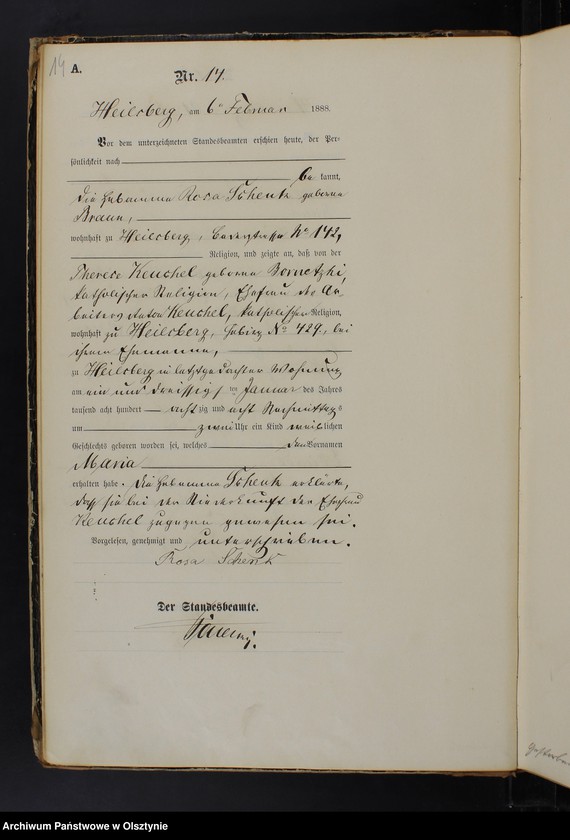 14
A.
Nr. 14.
Heilsberg, am 6ten Februar 1888.
Vor dem unterzeichneten Standesbeamten erschien heute, der Per-
sönlichkeit nach
be kannt,
die Hebamme Rosa Schenk geborene
Braun,
wohnhaft zu Heilsberg, No 142,
Religion, und zeigte an, daß von der
Therese Keuchel geborene Bornetzki,
katholischer Religion, Ehefrau des Ar-
beiters Anton Keuchel, katholischer Religion,
wohnhaft zu Heilsberg, No 429, bei
ihrem Ehemanne,
zu Heilsberg in letztgedachter Wohnung
am ein und dreissigsten Januar des Jahres
tausend acht hundert acht zig und acht Nachmittags
um zwei Uhr ein Kind weiblichen
Geschlechts geboren worden sei, welches den Vornamen
Maria
erhalten habe. Die Hebamme Schenk erklärte,
daß sie bei der Niederkunft der Ehefrau
Keuchel zugegen gewesen sei.
Vorgelesen, genehmigt und unterschrieben.
Rosa Schenk
Der Standesbeamte.
Archiwum Państwowe w Olsztynie